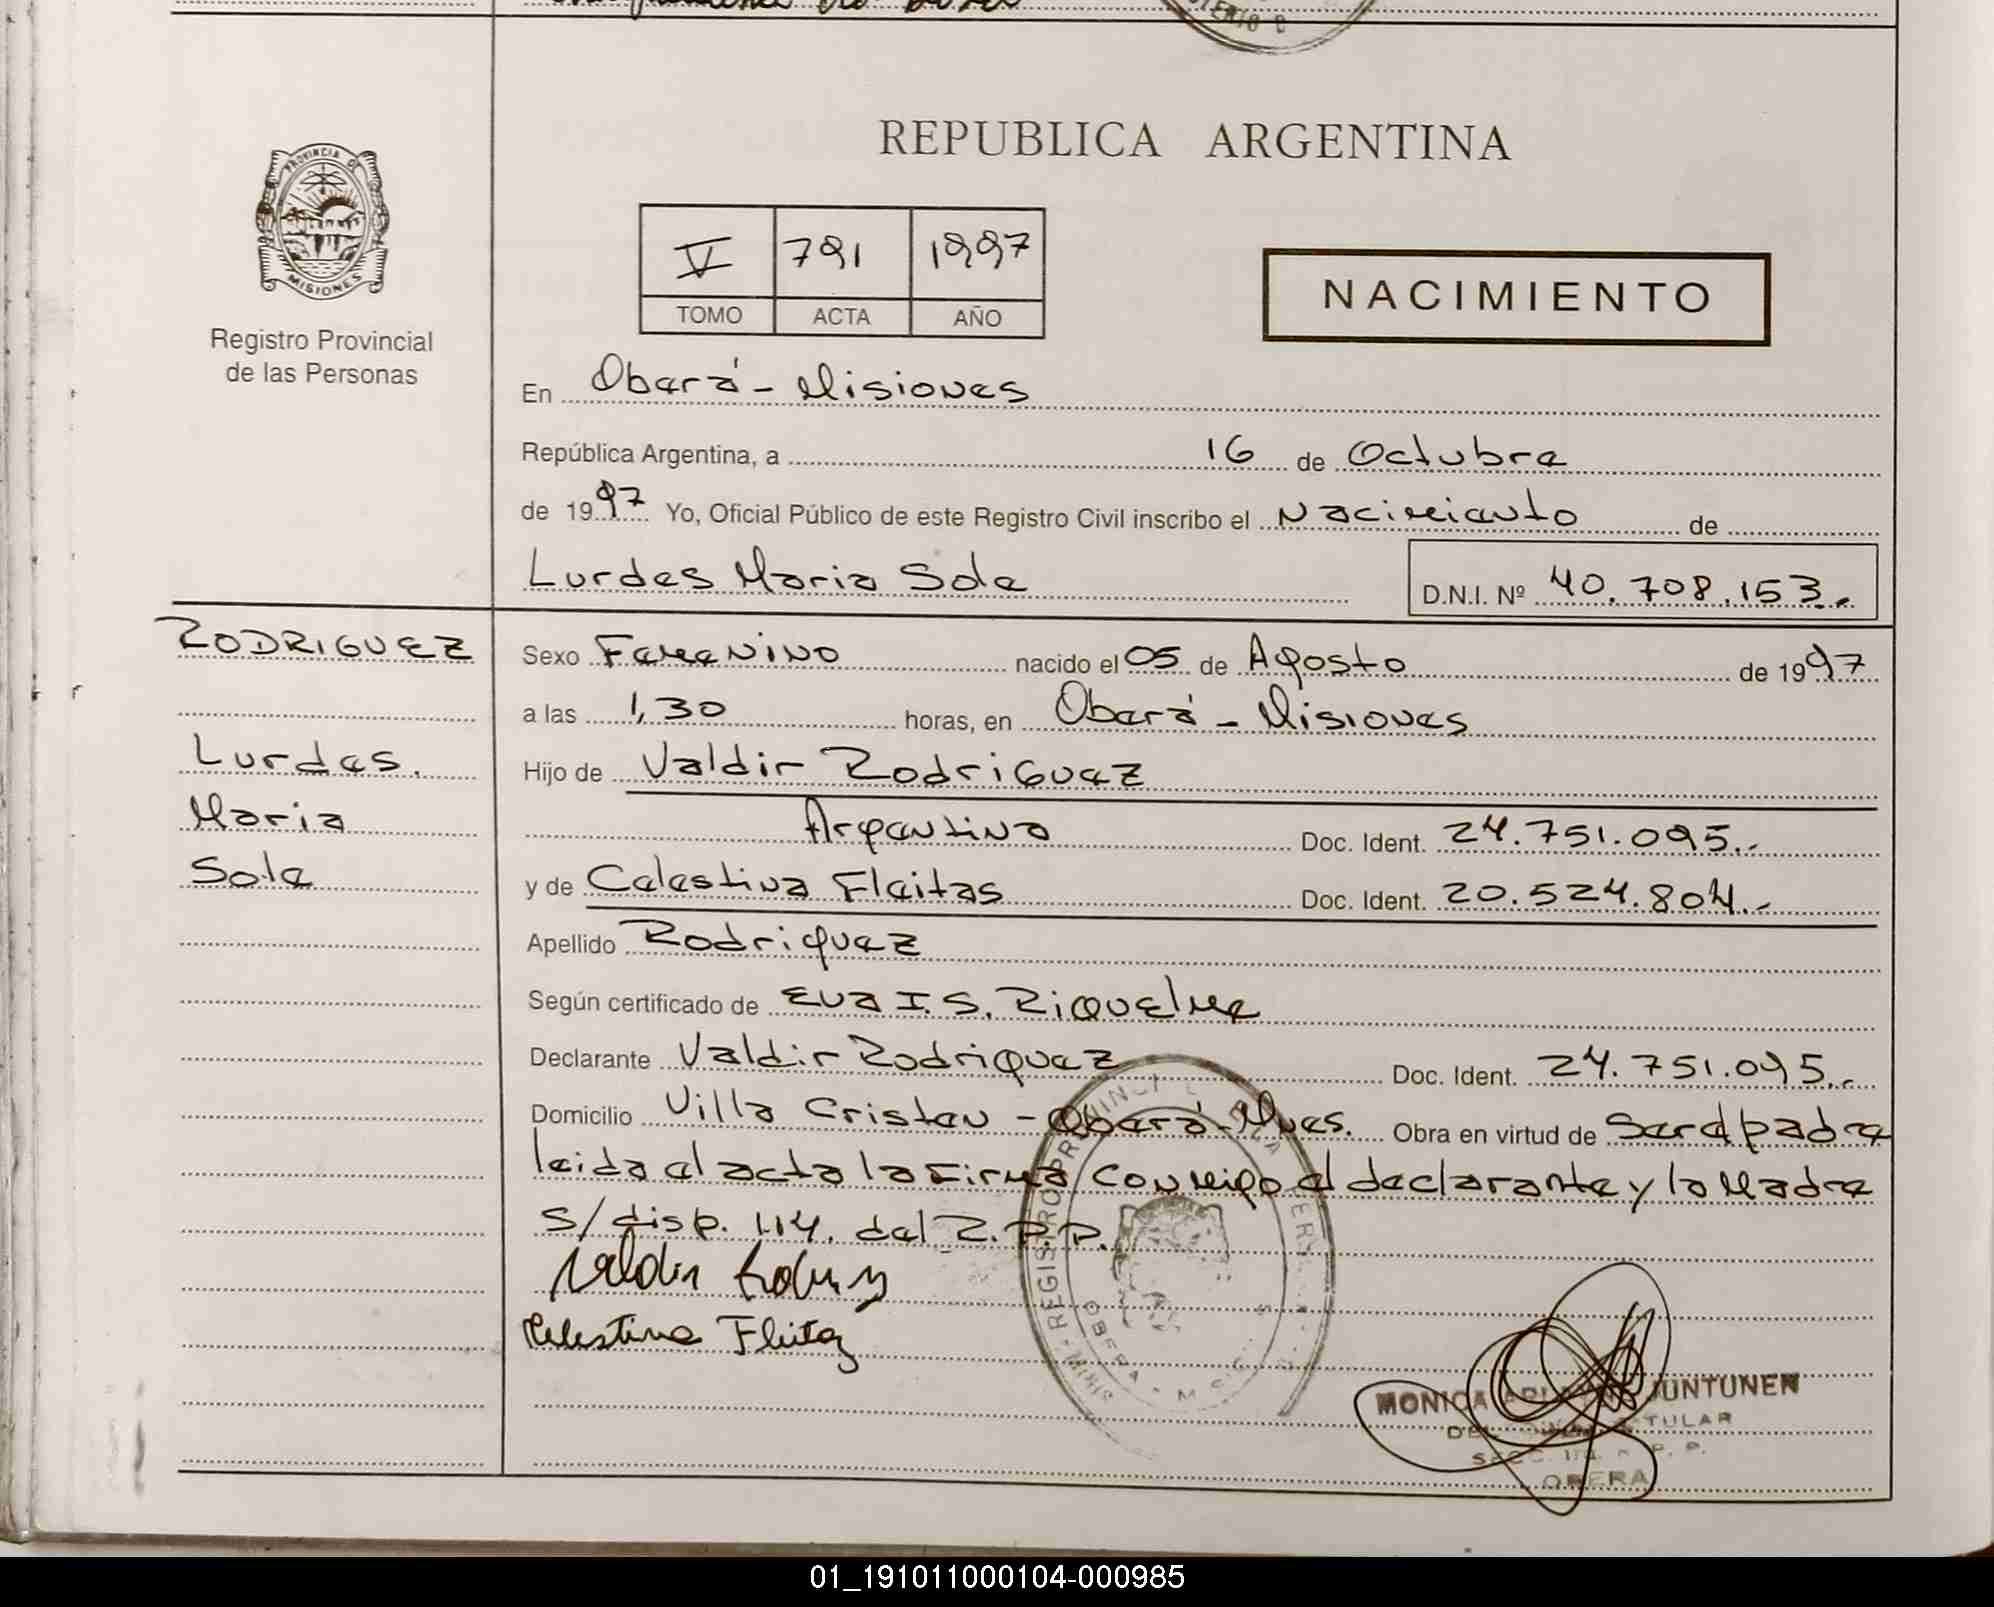 PROVINCIA DE
MISIONES
Registro Provincial
de las Personas
REPUBLICA ARGENTINA
V 791 1997
TOMO ACTA AÑO
NACIMIENTO
En Oberá - Misiones
República Argentina, a 16 de Octubre
de 1997 Yo, Oficial Público de este Registro Civil inscribo el Nacimiento de
Lurdes Maria Sole D.N.I. Nº 40.708.153.-
RODRIGUEZ
Lurdes.
Maria
Sole
Sexo Femenino nacido el 05 de Agosto de 1997
a las 1,30 horas, en Oberá - Misiones
Hijo de Valdir Rodriguez
Argentino Doc. Ident. 24.751.095.-
y de Celestina Fleitas Doc. Ident. 20.524.804.-
Apellido Rodriguez
Según certificado de Eva I. S. Riquelme
Declarante Valdir Rodriguez Doc. Ident. 24.751.095.-
Domicilio Villa Cristen - Oberá - Mnes. Obra en virtud de Ser el padre
leida el acta la firma conmigo el declarante y la Madre
S/disp. 114. del R.P.P.
Valdir
Celestina Fleitaz
MONICA JUNTUNEN
TITULAR
OBERA
01_191011000104-000985